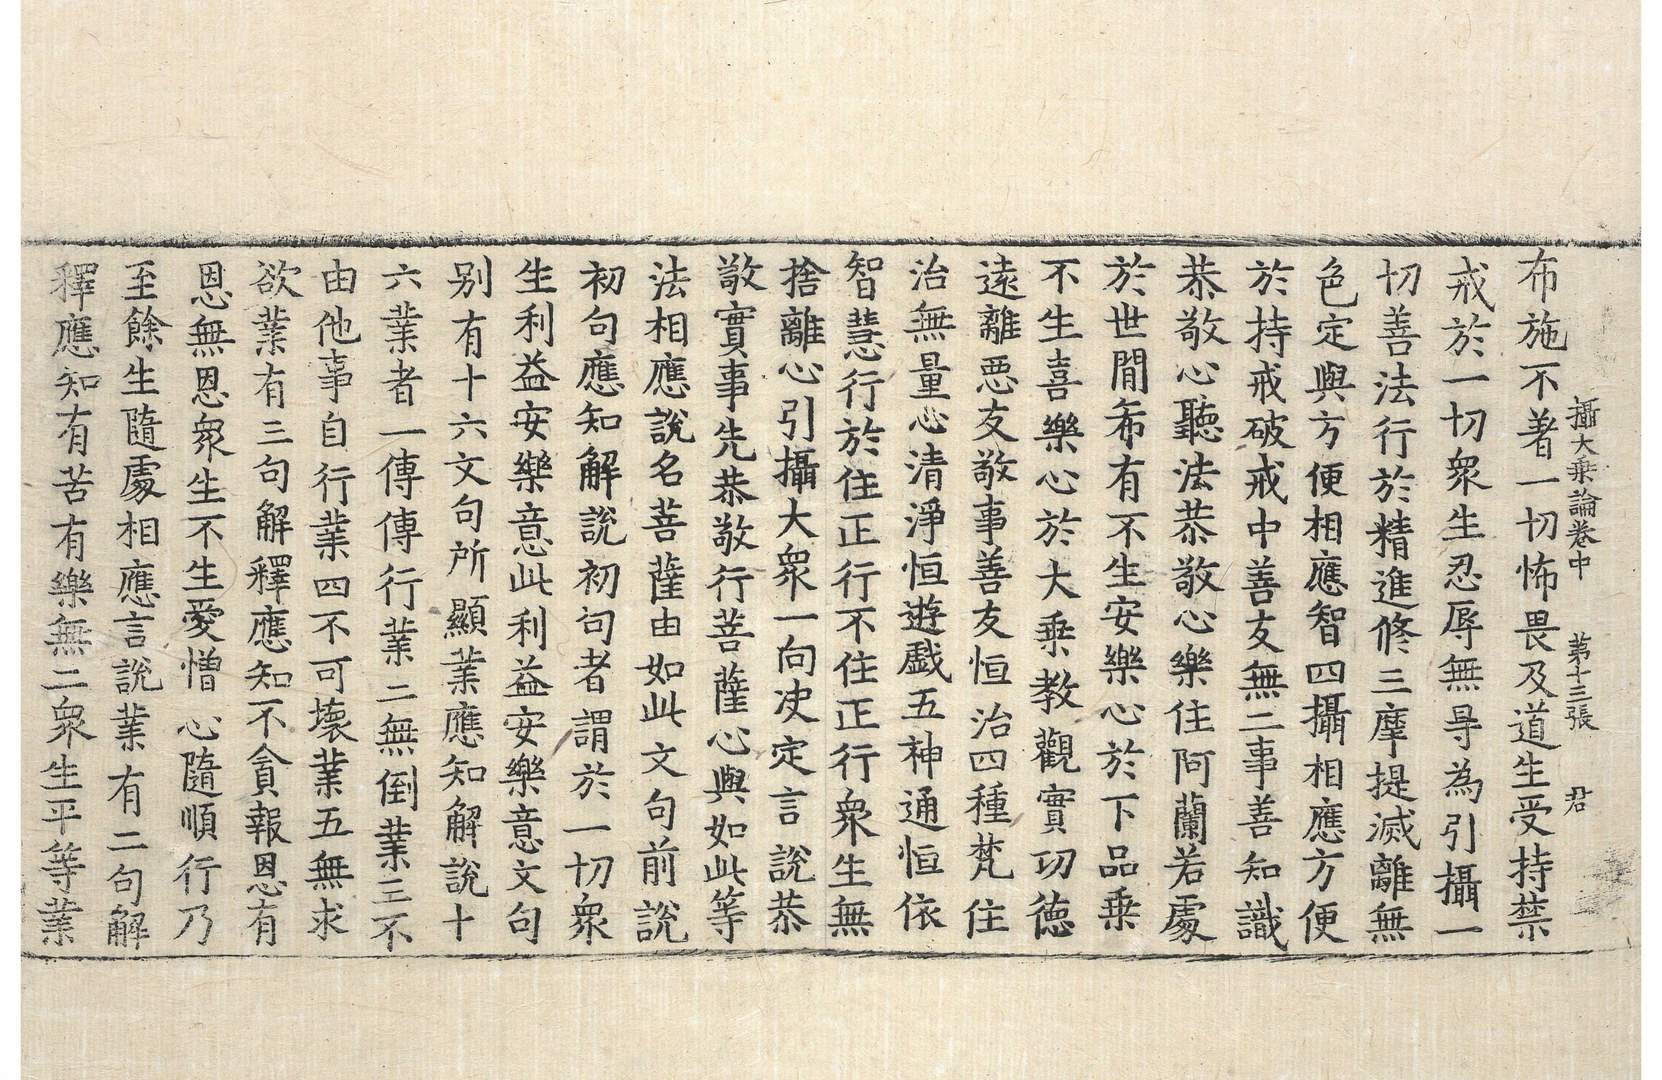 攝大乗論卷中　第十三張　君
布施不著一切怖畏及道生受持禁
戒於一切衆生忍辱無㝵為引攝一
切善法行於精進修三摩提滅離無
色定與方便相應智四攝相應方便
於持戒破戒中善友無二事善知識
恭敬心聽法恭敬心樂住阿蘭若處
於世間希有不生安樂心於下品乗
不生喜樂心於大乗教觀實功德
遠離惡友敬事善友恒治四種梵住
治無量心清淨恒遊戲五神通恒依
智慧行於住正行不住正行衆生無
捨離心引攝大衆一向決定言說恭
敬實事先恭敬行菩薩心與如此等
法相應說名菩薩由如此文句前說
初句應知解說初句者謂於一切衆
生利益安樂意此利益安樂意文句
别有十六文句所顯業應知解說十
六業者一傳傳行業二無倒業三不
由他事自行業四不可壞業五無求
欲業有三句解釋應知不貪報恩有
恩無恩衆生不生愛憎心隨順行乃
至餘生隨處相應言說業有二句解
釋應知有苦有樂無二衆生平等業